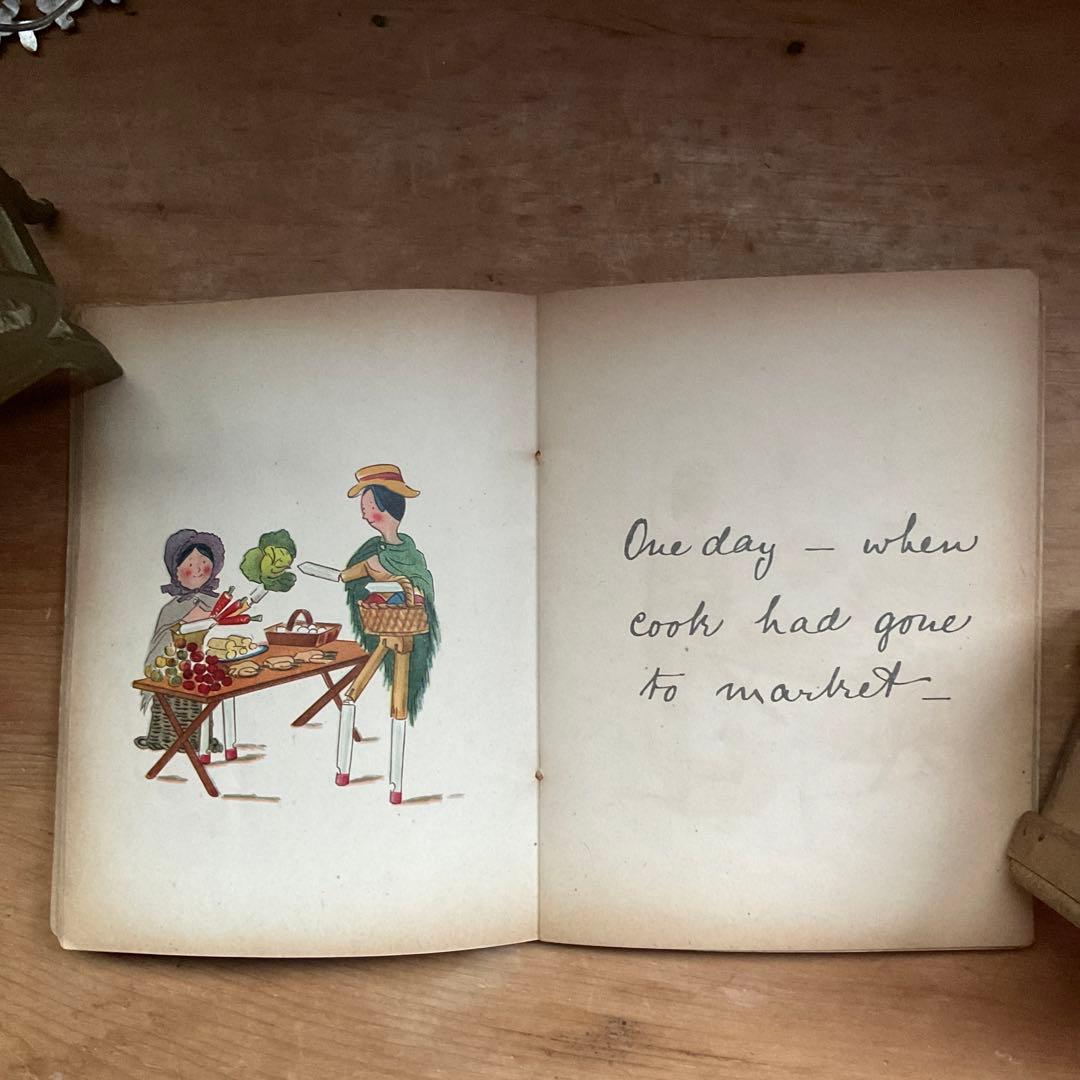 One day – when
cook had gone
to market –